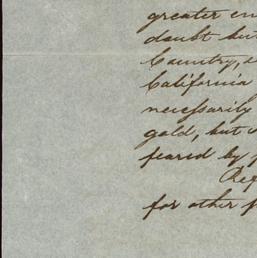 greater en
doubt but
Country, a
California
necessarily
gold, but
feared by
Ref
for other p